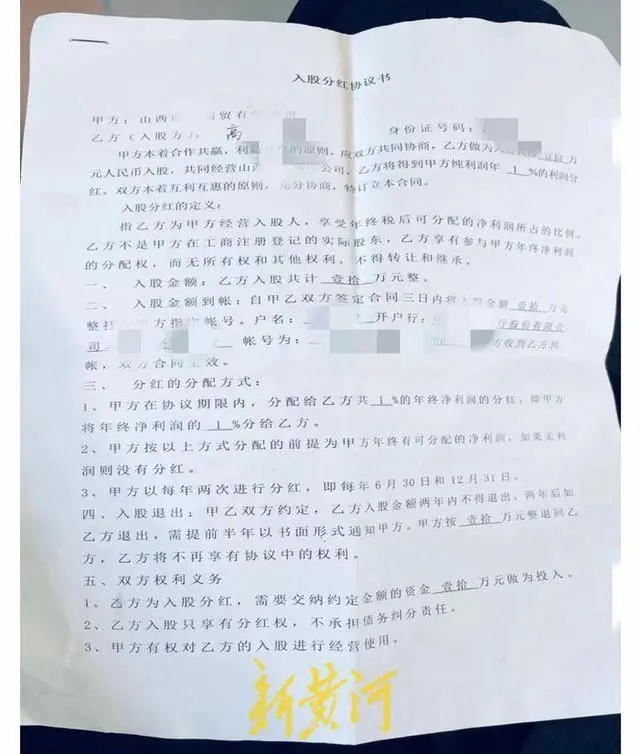 入股分红协议书
甲方：山西 贸有
乙方（入股方） 高 身份证号码：
甲方本着合作共赢，利 的原则。应双方共同协商，乙方做为入股 万
元人民币入股，共同经营山西 公司。乙方将得到甲方纯利润年 1 %的利润分
红。双方本着互利互惠的原则，充分协商，特订立本合同。
入股分红的定义：
指乙方为甲方经营入股人，享受年终税后可分配的净利润所占的比例。
乙方不是甲方在工商注册登记的实际股东，乙方享有参与甲方年终净利润
的分配权，而无所有权和其他权利，不得转让和继承。
一、 入股金额：乙方入股共计 壹拾 万元整。
二、 入股金额到帐：自甲乙双方签定合同三日内将入股金额 壹拾 万元
整打 方指定帐号。户名： 开户行： 行股份有限公
司 帐号为： 方收到乙方到
帐，双方合同生效。
三、 分红的分配方式：
1、甲方在协议期限内，分配给乙方共 1 %的年终净利润的分红，即甲方
将年终净利润的 1 %分给乙方。
2、甲方按以上方式分配的前提为甲方年终有可分配的净利润，如果无利
润则没有分红。
3、甲方以每年两次进行分红，即每年6月30日和12月31日。
四、入股退出：甲乙双方约定，乙方入股金额两年内不得退出，两年后如
乙方退出，需提前半年以书面形式通知甲方。甲方按 壹拾 万元整退回乙
方，乙方将不再享有协议中的权利。
五、双方权利义务
1、乙方为入股分红，需要交纳约定金额的资金 壹拾 万元做为投入。
2、乙方入股只享有分红权，不承担债务纠分责任。
3、甲方有权对乙方的入股进行经营使用。
新黄河